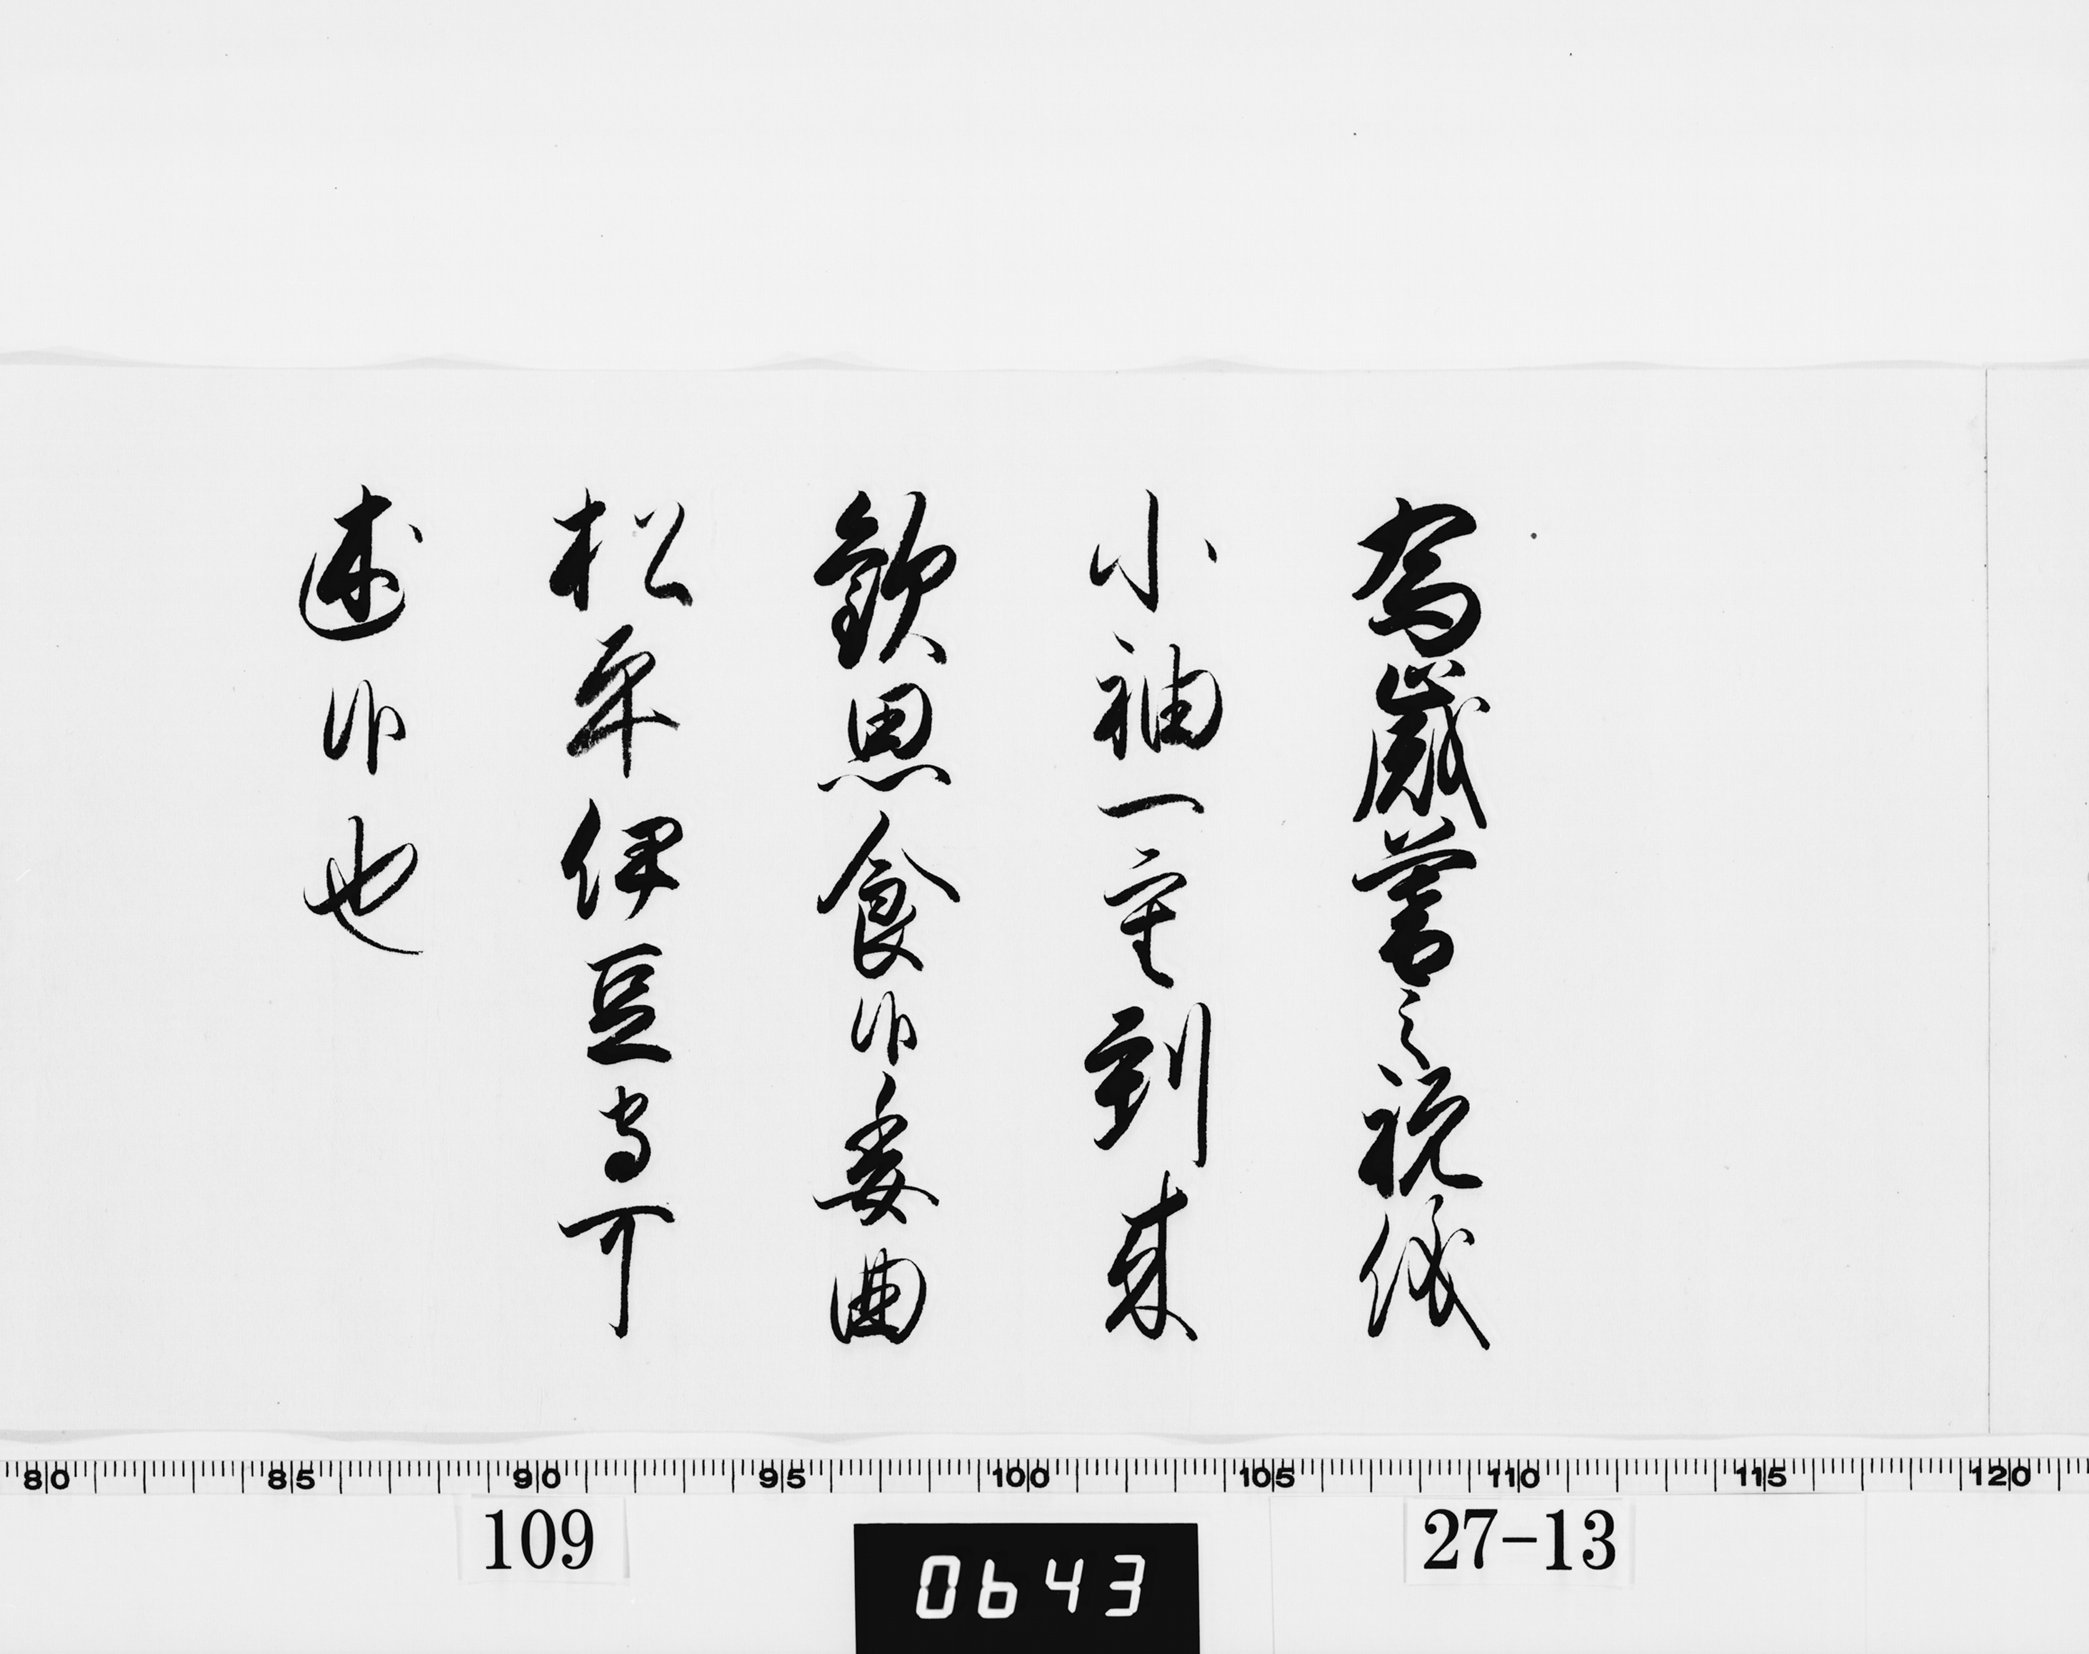 為歳暮之祝儀
小袖一重到来
歓思食候委曲
松平伊豆守可
述候也
80 85 90 95 100 105 110 115 120
109
0643
27-13